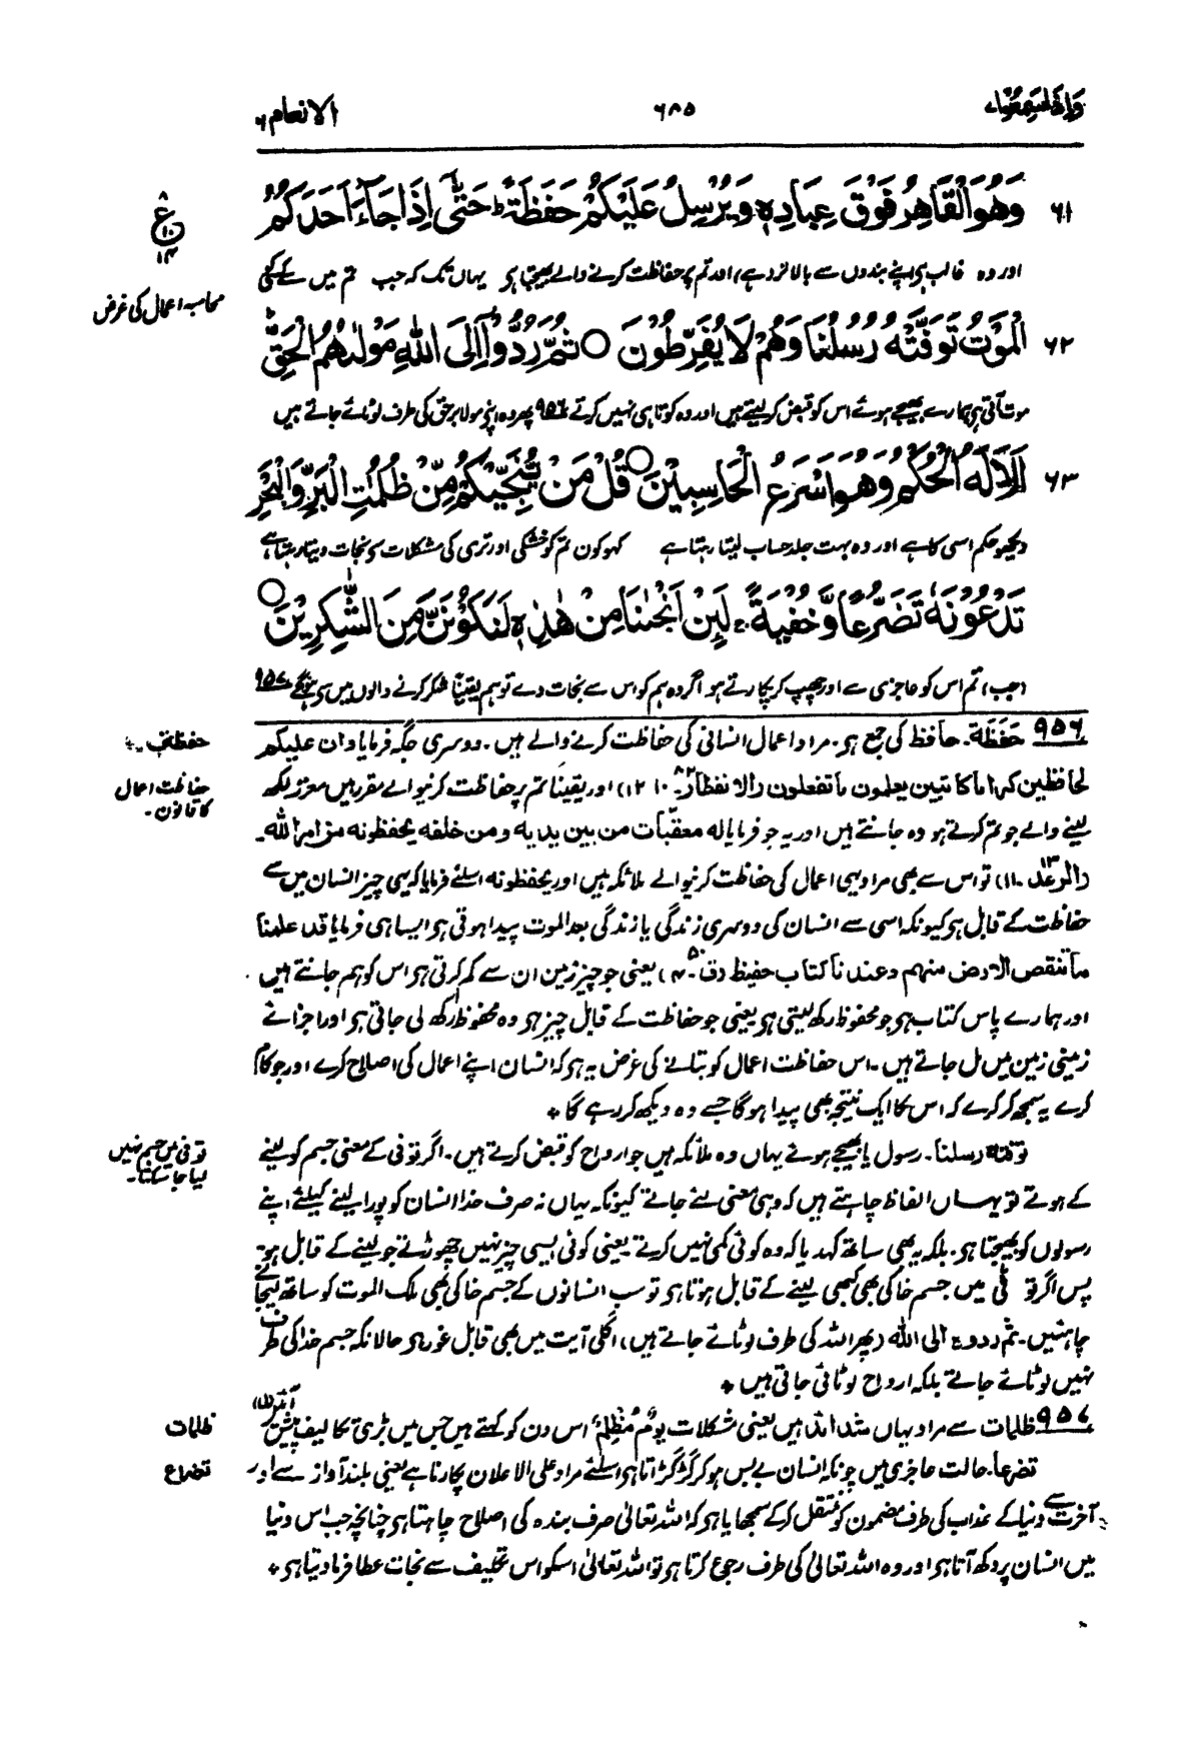 واذا سمعوا ۷
۶۸۵
الانعام ۶
۶۱ وَهُوَ الْقَاهِرُ فَوْقَ عِبَادِهٖ وَيُرْسِلُ عَلَيْكُمْ حَفَظَةً ؕ حَتّٰۤى اِذَا جَآءَ اَحَدَكُمُ
ع ۱۰ ۱۴
اور وہ غالب ہو اپنے بندوں سے بالا تر ہے، اور تم پر حفاظت کرنے والے بھیجتا ہو یہاں تک کہ جب تم میں سے کسی کی
محاسبہ اعمال کی غرض
۶۲ الْمَوْتُ تَوَفَّتْهُ رُسُلُنَا وَهُمْ لَا يُفَرِّطُوْنَ ○ ثُمَّ رُدُّوْۤا اِلَى اللّٰهِ مَوْلٰىهُمُ الْحَقِّ ؕ
موت آتی ہو ہمارے بھیجے ہوئے اس کو قبض کر لیتے ہیں اور وہ کوتاہی نہیں کرتے ۹۵۶ پھر وہ اپنے مولا برحق کی طرف لوٹائے جاتے ہیں
۶۳ اَلَا لَهُ الْحُكْمُ وَهُوَ اَسْرَعُ الْحَاسِبِيْنَ ○ قُلْ مَنْ يُّنَجِّيْكُمْ مِّنْ ظُلُمٰتِ الْبَرِّ وَالْبَحْرِ
دیکھو حکم اسی کا ہے اور وہ بہت جلد حساب لیتا رہتا ہے کہو کون تم کو خشکی اور تری کی مشکلات سے نجات دیتا رہتا ہے
تَدْعُوْنَهٗ تَضَرُّعًا وَّخُفْيَةً ۚ لَئِنْ اَنْجٰىنَا مِنْ هٰذِهٖ لَنَكُوْنَنَّ مِنَ الشّٰكِرِيْنَ ○
(جب) تم اس کو عاجزی سے اور چھپ کر پکارتے ہو اگر وہ ہم کو اس سے نجات دے تو ہم یقیناً شکر کرنے والوں میں سے ہونگے ۹۵۷
۹۵۶ حَفَظَة۔ حافظ کی جمع ہو۔ مراد اعمال انسانی کی حفاظت کرنے والے ہیں۔ دوسری جگہ فرمایا وان علیکم
حفظة۔
لحافظین کراما کاتبین یعلمون ما تفعلون (الانفطار ۸۲۔ ۱۰، ۱۲) اور یقیناً تم پر حفاظت کرنیوالے مقرر ہیں معزز لکھ
حفاظت اعمال
کا قانون۔
لینے والے جو تم کرتے ہو وہ جانتے ہیں اور یہ جو فرمایا له معقبات من بین یدیه ومن خلفه یحفظونه من امر الله۔
(الرعد ۱۳۔ ۱۱) تو اس سے بھی مراد یہی اعمال کی حفاظت کرنیوالے ملائکہ ہیں اور یحفظونه اسلئے فرمایا کہ یہی چیز انسان میں سے
حفاظت کے قابل ہو کیونکہ اسی سے انسان کی دوسری زندگی یا زندگی بعد الموت پیدا ہوتی ہو ایسا ہی فرمایا قد علمنا
ما تنقص الارض منهم وعندنا کتاب حفیظ (ق ۵۰۔ ۴) یعنی جو چیز زمین ان سے کم کرتی ہو اس کو ہم جانتے ہیں
اور ہمارے پاس کتاب ہو جو محفوظ رکھ لیتی ہو یعنی جو حفاظت کے قابل چیز ہو وہ محفوظ رکھ لی جاتی ہو اور اجزائے
زمینی زمین میں مل جاتے ہیں۔ اس حفاظت اعمال کو بتانے کی غرض یہ ہو کہ انسان اپنے اعمال کی اصلاح کرے اور جو کام
کرے یہ سمجھ کر کرے کہ اس کا ایک نتیجہ بھی پیدا ہوگا جسے وہ دیکھ کر رہے گا ٭
توفته رسلنا۔ رسول یا بھیجے ہوئے یہاں وہ ملائکہ ہیں جو ارواح کو قبض کرتے ہیں۔ اگر توفی کے معنی جسم کو لینے
توفی میں جسم نہیں
لیا جا سکتا۔
کے ہوتے تو یہاں الفاظ چاہتے ہیں کہ وہی معنی لئے جاتے کیونکہ یہاں نہ صرف خدا انسان کو پورا لینے کیلئے اپنے
رسولوں کو بھیجتا ہو۔ بلکہ یہ بھی ساتھ کہدیا کہ وہ کوئی کمی نہیں کرتے یعنی کوئی ایسی چیز نہیں چھوڑتے جو لینے کے قابل ہو۔
پس اگر توفی میں جسم خاکی بھی کبھی لینے کے قابل ہوتا ہو تو سب انسانوں کے جسم خاکی بھی ملک الموت کو ساتھ لیجانے
چاہئیں۔ ثم ردوا الی الله (پھر اللہ کی طرف لوٹائے جاتے ہیں) اگلی آیت میں بھی قابل غور ہو حالانکہ جسم خدا کی طرف
نہیں لوٹائے جاتے بلکہ ارواح لوٹائی جاتی ہیں ٭
۹۵۷ ظلمات سے مراد یہاں شدائد ہیں یعنی مشکلات یَوْمٌ مُظْلِمٌ اس دن کو کہتے ہیں جس میں بڑی تکالیف پیش آئیں (ل)
ظلمات
تضرعا۔ حالت عاجزی میں چونکہ انسان بے بس ہو کر گڑگڑاتا ہو اسلئے مراد علی الاعلان پکارنا ہے یعنی بلند آواز سے اور
تضرع
آخرت سے دنیا کے عذاب کی طرف مضمون کو منتقل کر کے سمجھایا ہو کہ اللہ تعالیٰ صرف بندہ کی اصلاح چاہتا ہو چنانچہ جب اس دنیا
میں انسان پر دکھ آتا ہو اور وہ اللہ تعالیٰ کی طرف رجوع کرتا ہو تو اللہ تعالیٰ اسکو اس تکلیف سے نجات عطا فرما دیتا ہو ٭